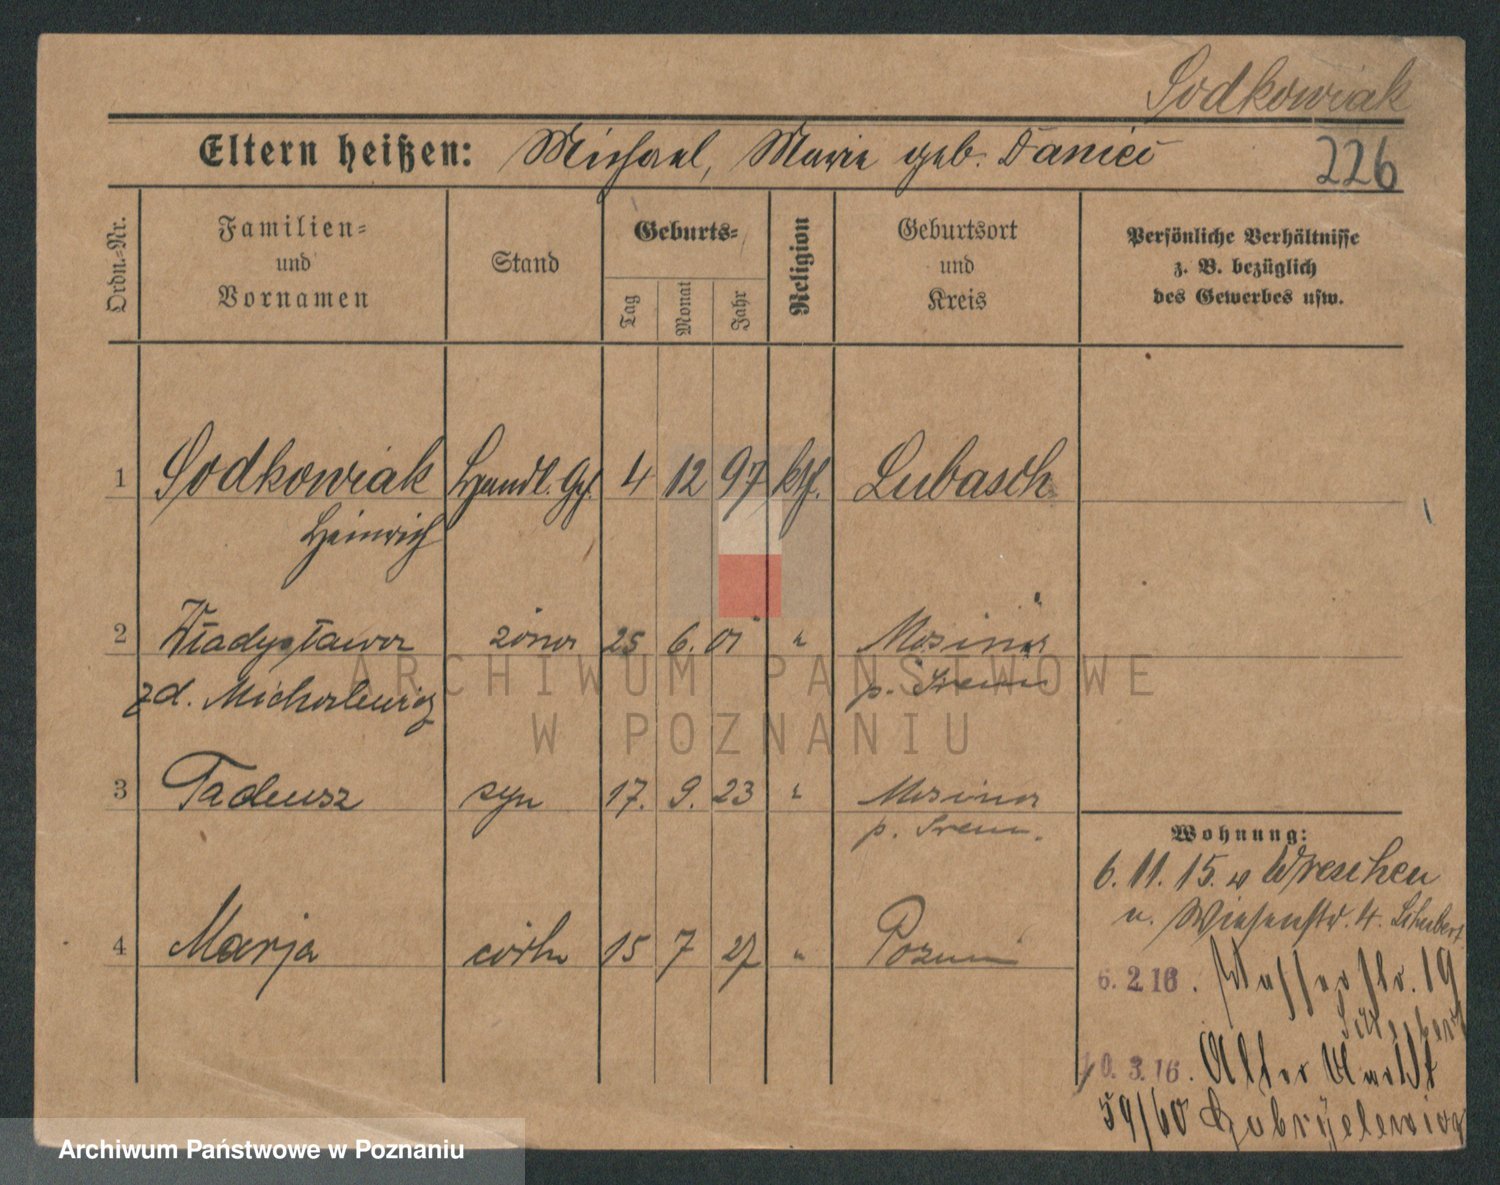 Sodkowiak
Eltern heißen: Michael, Marie geb. Daniei
226
Ordn.=Nr.
Familien=
und
Vornamen
Stand
Geburts=
Tag
Monat
Jahr
Religion
Geburtsort
und
Kreis
Persönliche Verhältnisse
z. B. bezüglich
des Gewerbes usw.
1 Sodkowiak Handl. Gh. 4 12 97 kth. Lubasch
Heinrich
2 Władysława żona 25 6. 01 " Mosina
zd. Michalewicz p. Śrem
3 Tadeusz syn 17. 9. 23 " Mosina
p. Śrem.
Wohnung:
6. 11. 15. v Wreschen
n. Wiesenstr. 4. Schubert
4 Marja córka 15 7 27 " Poznań
6. 2. 16. Wasserstr. 19
Schubert
10. 3. 16. Alter Markt
59/60 Gabryelewicz
ARCHIWUM PAŃSTWOWE
W POZNANIU
Archiwum Państwowe w Poznaniu